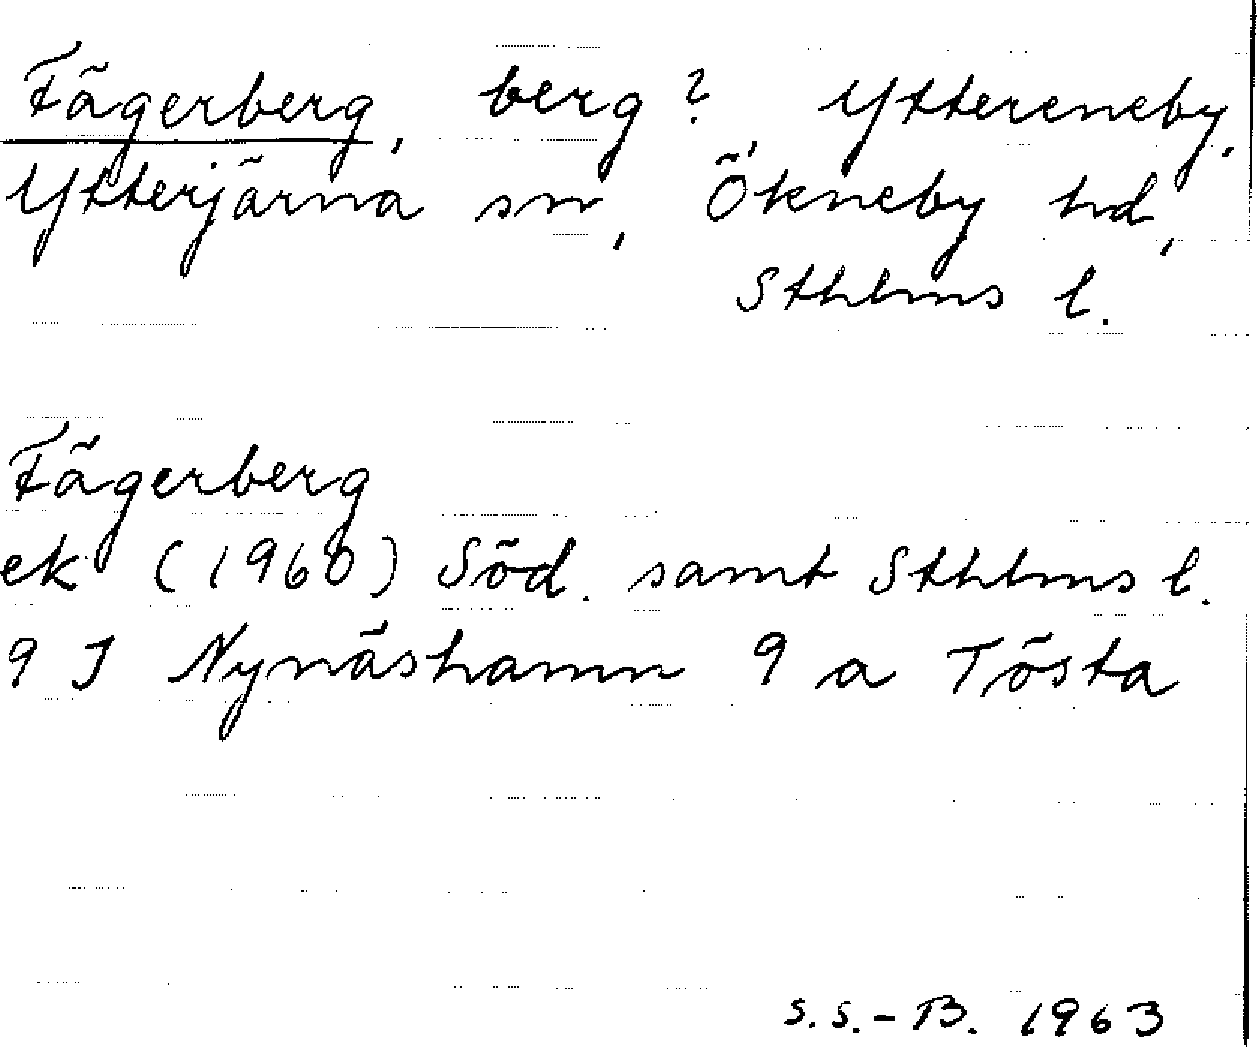 Fägerberg, berg?, Yttereneby,
Ytterjärna sn, Ökneby hd,
Sthlms l.
Fägerberg
ek (1960) Söd. samt Sthlms l.
9 I Nynäshamn 9 a Tösta
S.S.-B. 1963